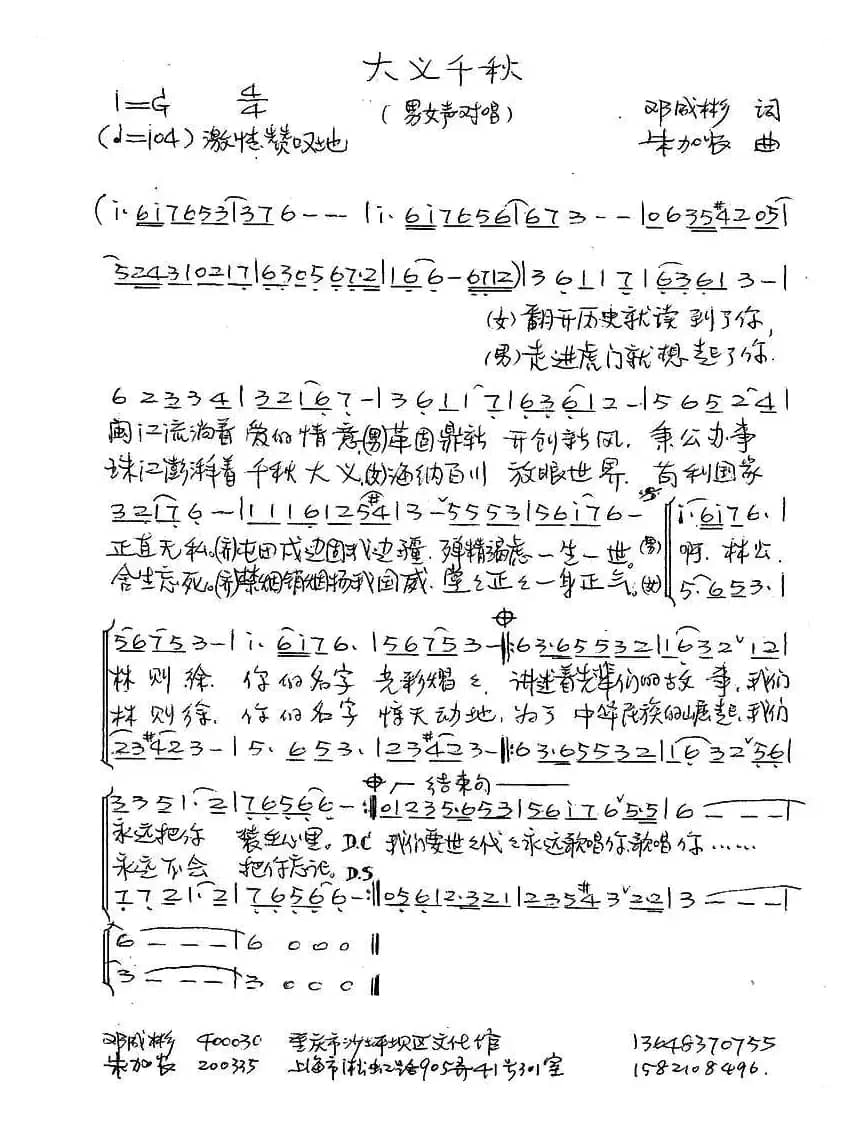 大义千秋
1=G 4/4 (男女声对唱) 邓成彬 词
(♩=104) 激情赞叹地 朱加农 曲
(i· 6i7653|376---|i· 6i7656|673--|0635#4205|
52431 0217|630567·2|166-6712)|36117|63613-|
(女)翻开历史就读到了你,
(男)走进虎门就想起了你.
62334|32167-|36117|63612-|56524|
闽江流淌着 爱的情意,(男)革固鼎新 开创新风. 秉公办事
珠江澎湃着 千秋大义,(女)海纳百川 放眼世界. 苟利国家
32176-|1116125#4|3-ˇ5553|56i76-|i·6i76·|
正直无私。(齐)屯田戍边固我边疆. 殚精竭虑一生一世。(男) 啊. 林公.
舍生忘死。(齐)禁烟销烟扬我国威. 堂々正々一身正气。(女)
5·653·|
56753-|i·6i76·|56753-‖:63·655532|1632ˇ12|
林则徐. 你的名字 光彩熠々. 讲述着先辈们的故事,我们
林则徐. 你的名字 惊天动地,为了中华民族的崛起,我们
23#423-|5·653·|23#423-‖:63·655532|1632ˇ56|
结束句
3351·2|76566-:‖01235·653|56i76ˇ5·5|6---|
永远把你 装在心里。D.C 我们要世々代々永远歌唱你歌唱你……
永远不会 把你忘记。D.S
7721·2|76566-:‖05612·321|235#43ˇ2·2|3---|
6---|6000‖
3---|3000‖
邓成彬 400030 重庆市沙坪坝区文化馆 13648370755
朱加农 200335 上海市淞虹路905弄41号301室 1582108496.